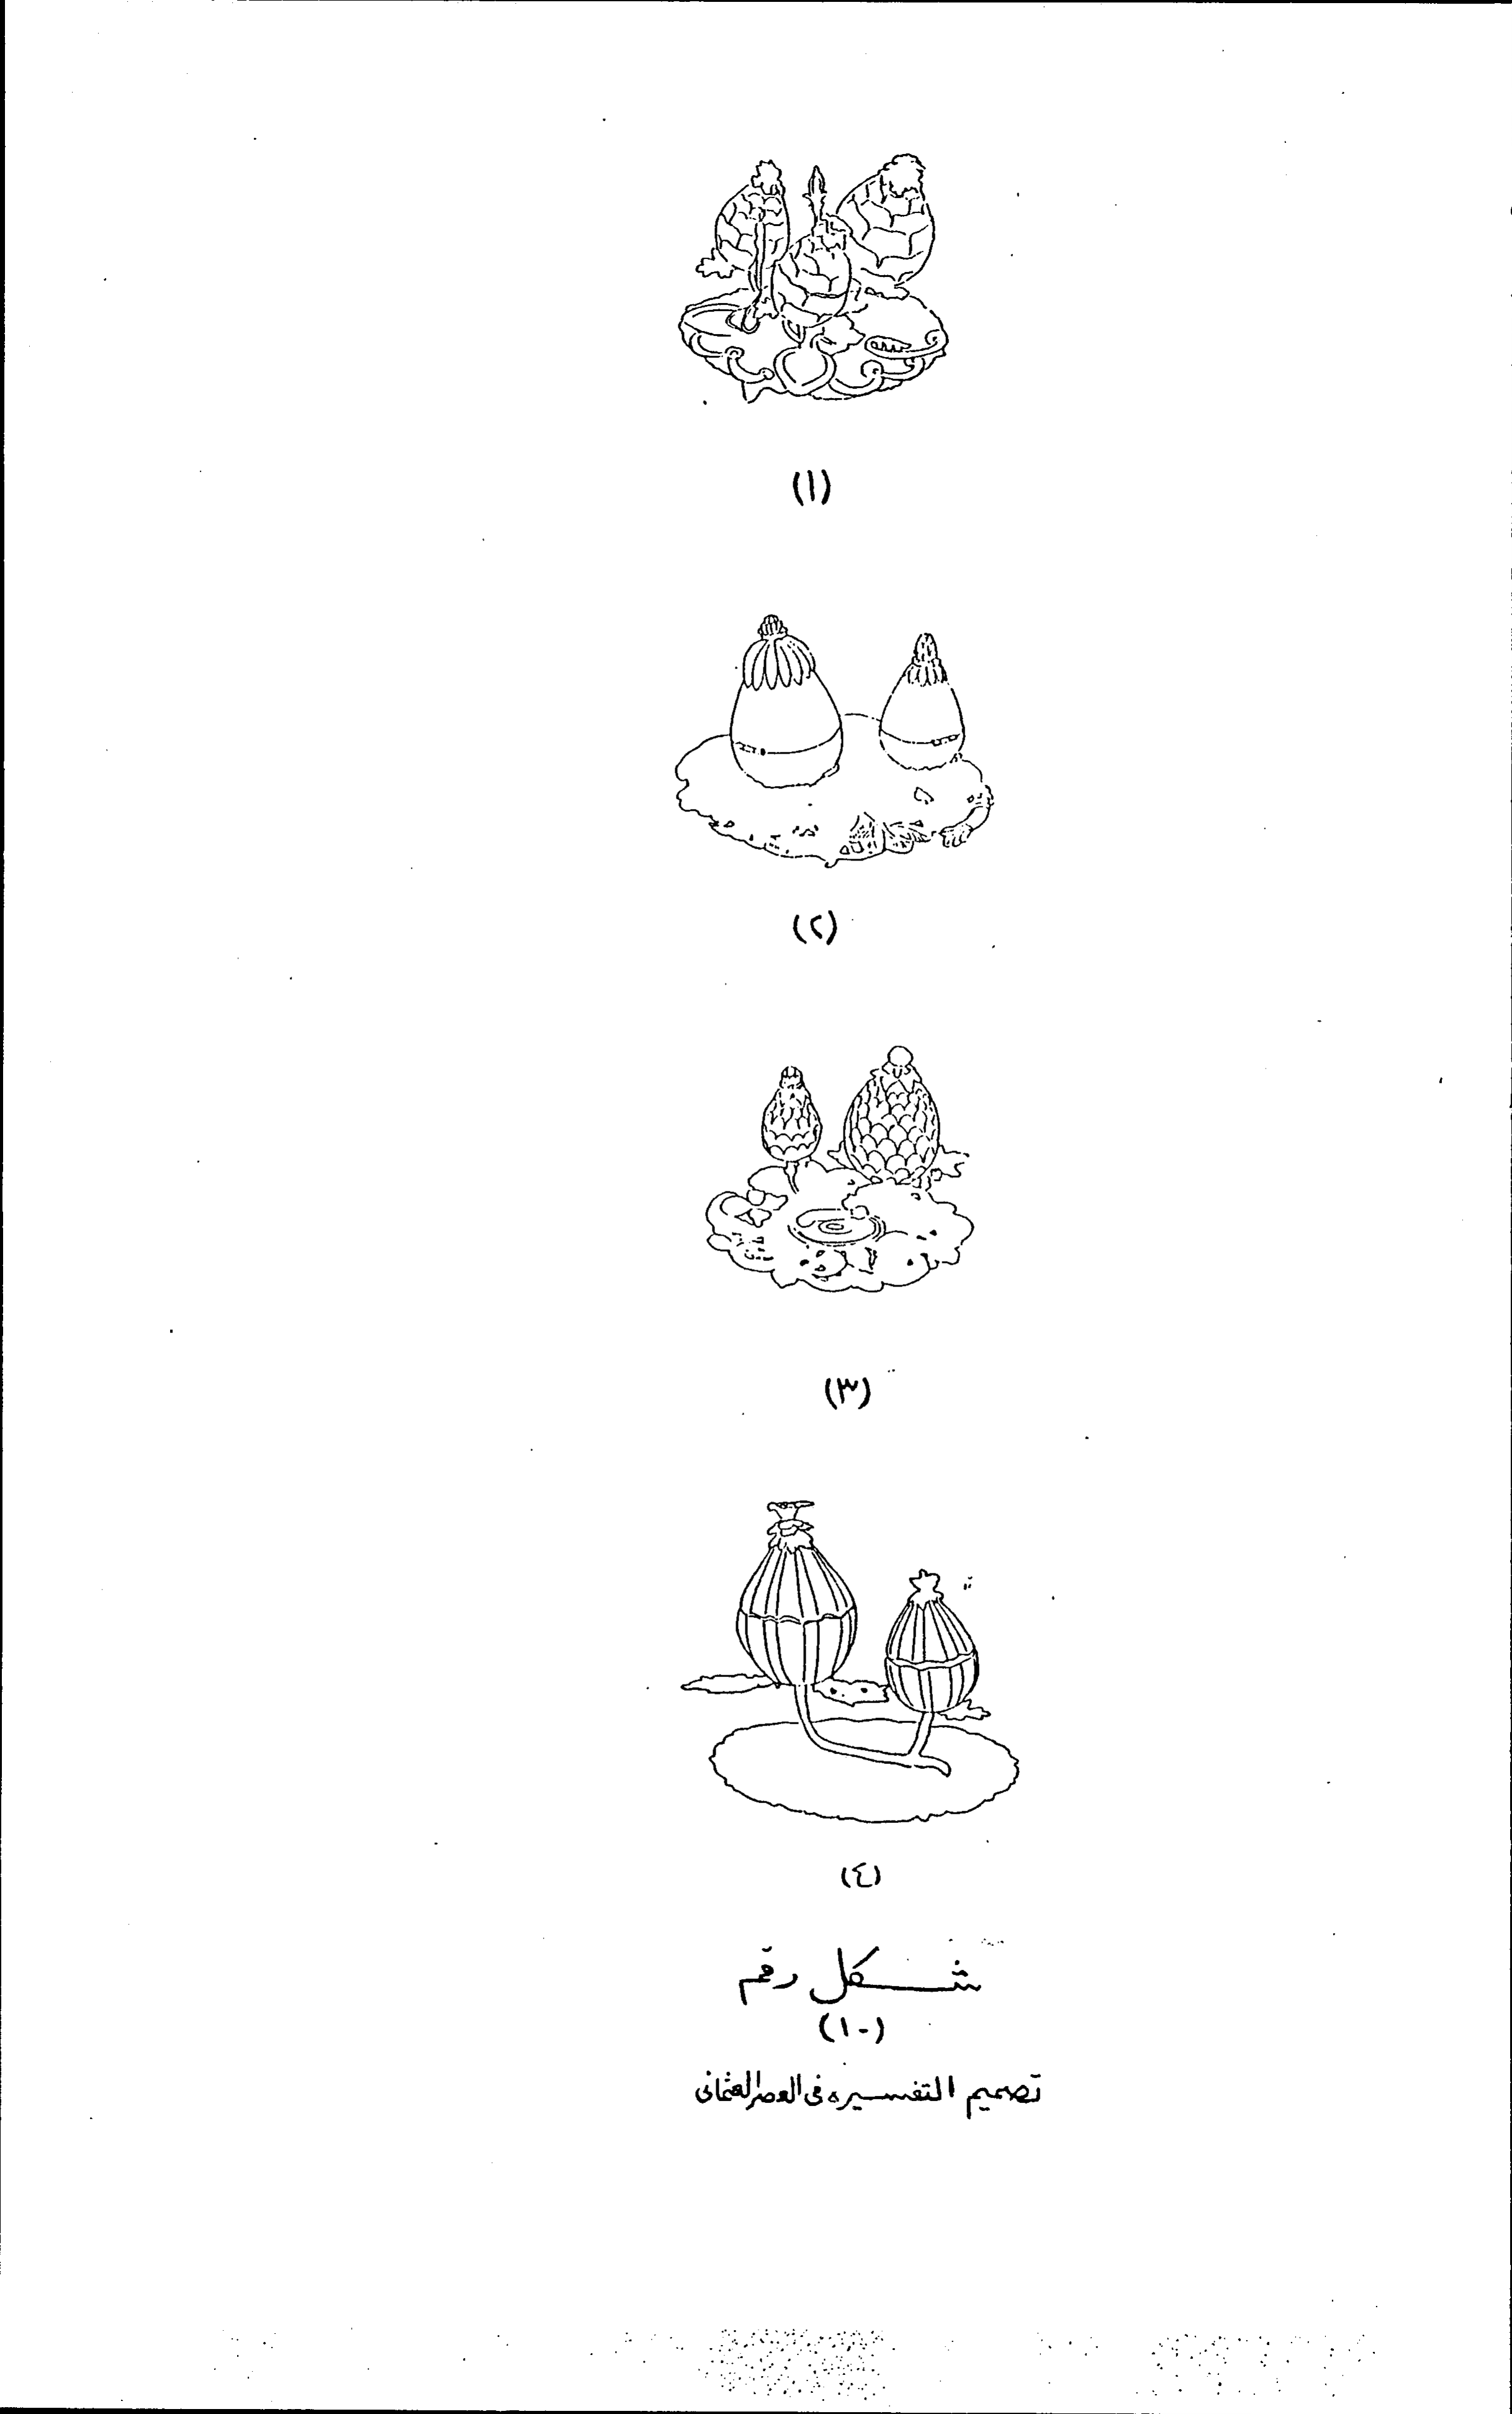 (١)
(٢)
(٣)
(٤)
شكل رقم
(١٠)
تصميم التفسيره فى العصر العثمانى